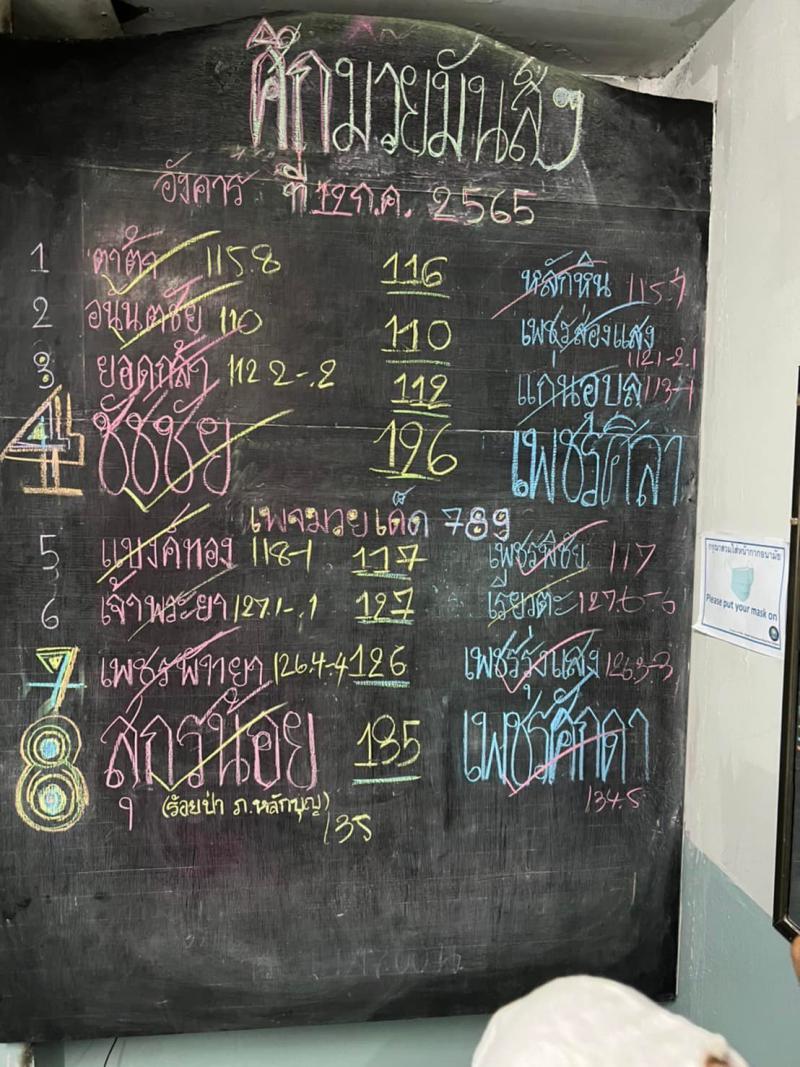 ศึกมวยมันส์ๆ
อังคาร ที่ 12 ก.ค. 2565
1 ตาต้า 115.8 116 หลักหิน 115.7
2 อนันตชัย 110 110 เพชรส่องแสง
3 ยอดกล้า 112.2-.2 112 แก่นอุบล 113-1
112.1-2.1
4 ชัชชัย 126 เพชรศิลา
เพจมวยเด็ด 789
5 แบงค์ทอง 118-1 117 เพชรพิชัย 117
6 เจ้าพระยา 127.1-.1 127 เรียวตะ 127.6-6
7 เพชรพัทยา 126.4-4 126 เพชรรุ่งแสง 126.3-3
8 สกรน้อย 135 เพชรศักดา
(ร้อยป่า ภ.หลักบุญ) 134.5
135
กรุณาสวมใส่หน้ากากอนามัย
Please put your mask on